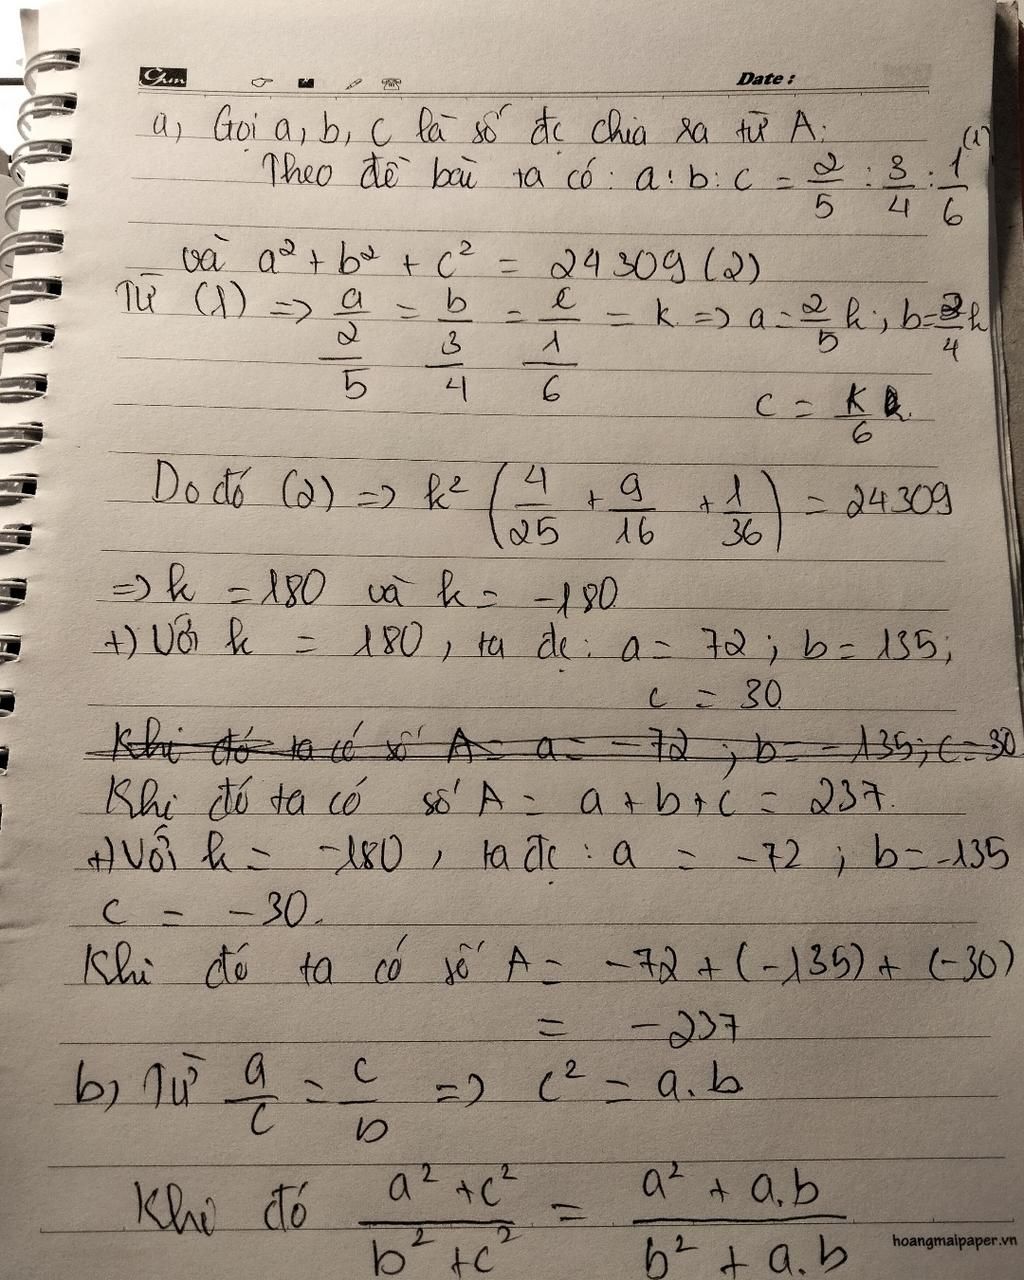 Date :
a, Gọi a, b, c là số đc chia ra từ A.
Theo đề bài ta có: a : b : c = 2/5 : 3/4 : 1/6 (1)
và a² + b² + c² = 24309 (2)
Từ (1) => a/(2/5) = b/(3/4) = c/(1/6) = k => a = 2/5 k ; b = 3/4 k
c = k/6
Do đó (2) => k² (4/25 + 9/16 + 1/36) = 24309
=> k = 180 và k = -180
+) Với k = 180 , ta đc : a = 72 ; b = 135;
c = 30
Khi đó ta có số A = a = -72 ; b = -135; c = 30
Khi đó ta có số A = a + b + c = 237.
+) Với k = -180 , ta đc : a = -72 ; b = -135
c = -30.
Khi đó ta có số A = -72 + (-135) + (-30)
= -237
b, Từ a/c = c/b => c² = a.b
Khi đó (a² + c²)/(b² + c²) = (a² + a.b)/(b² + a.b)
hoangmaipaper.vn